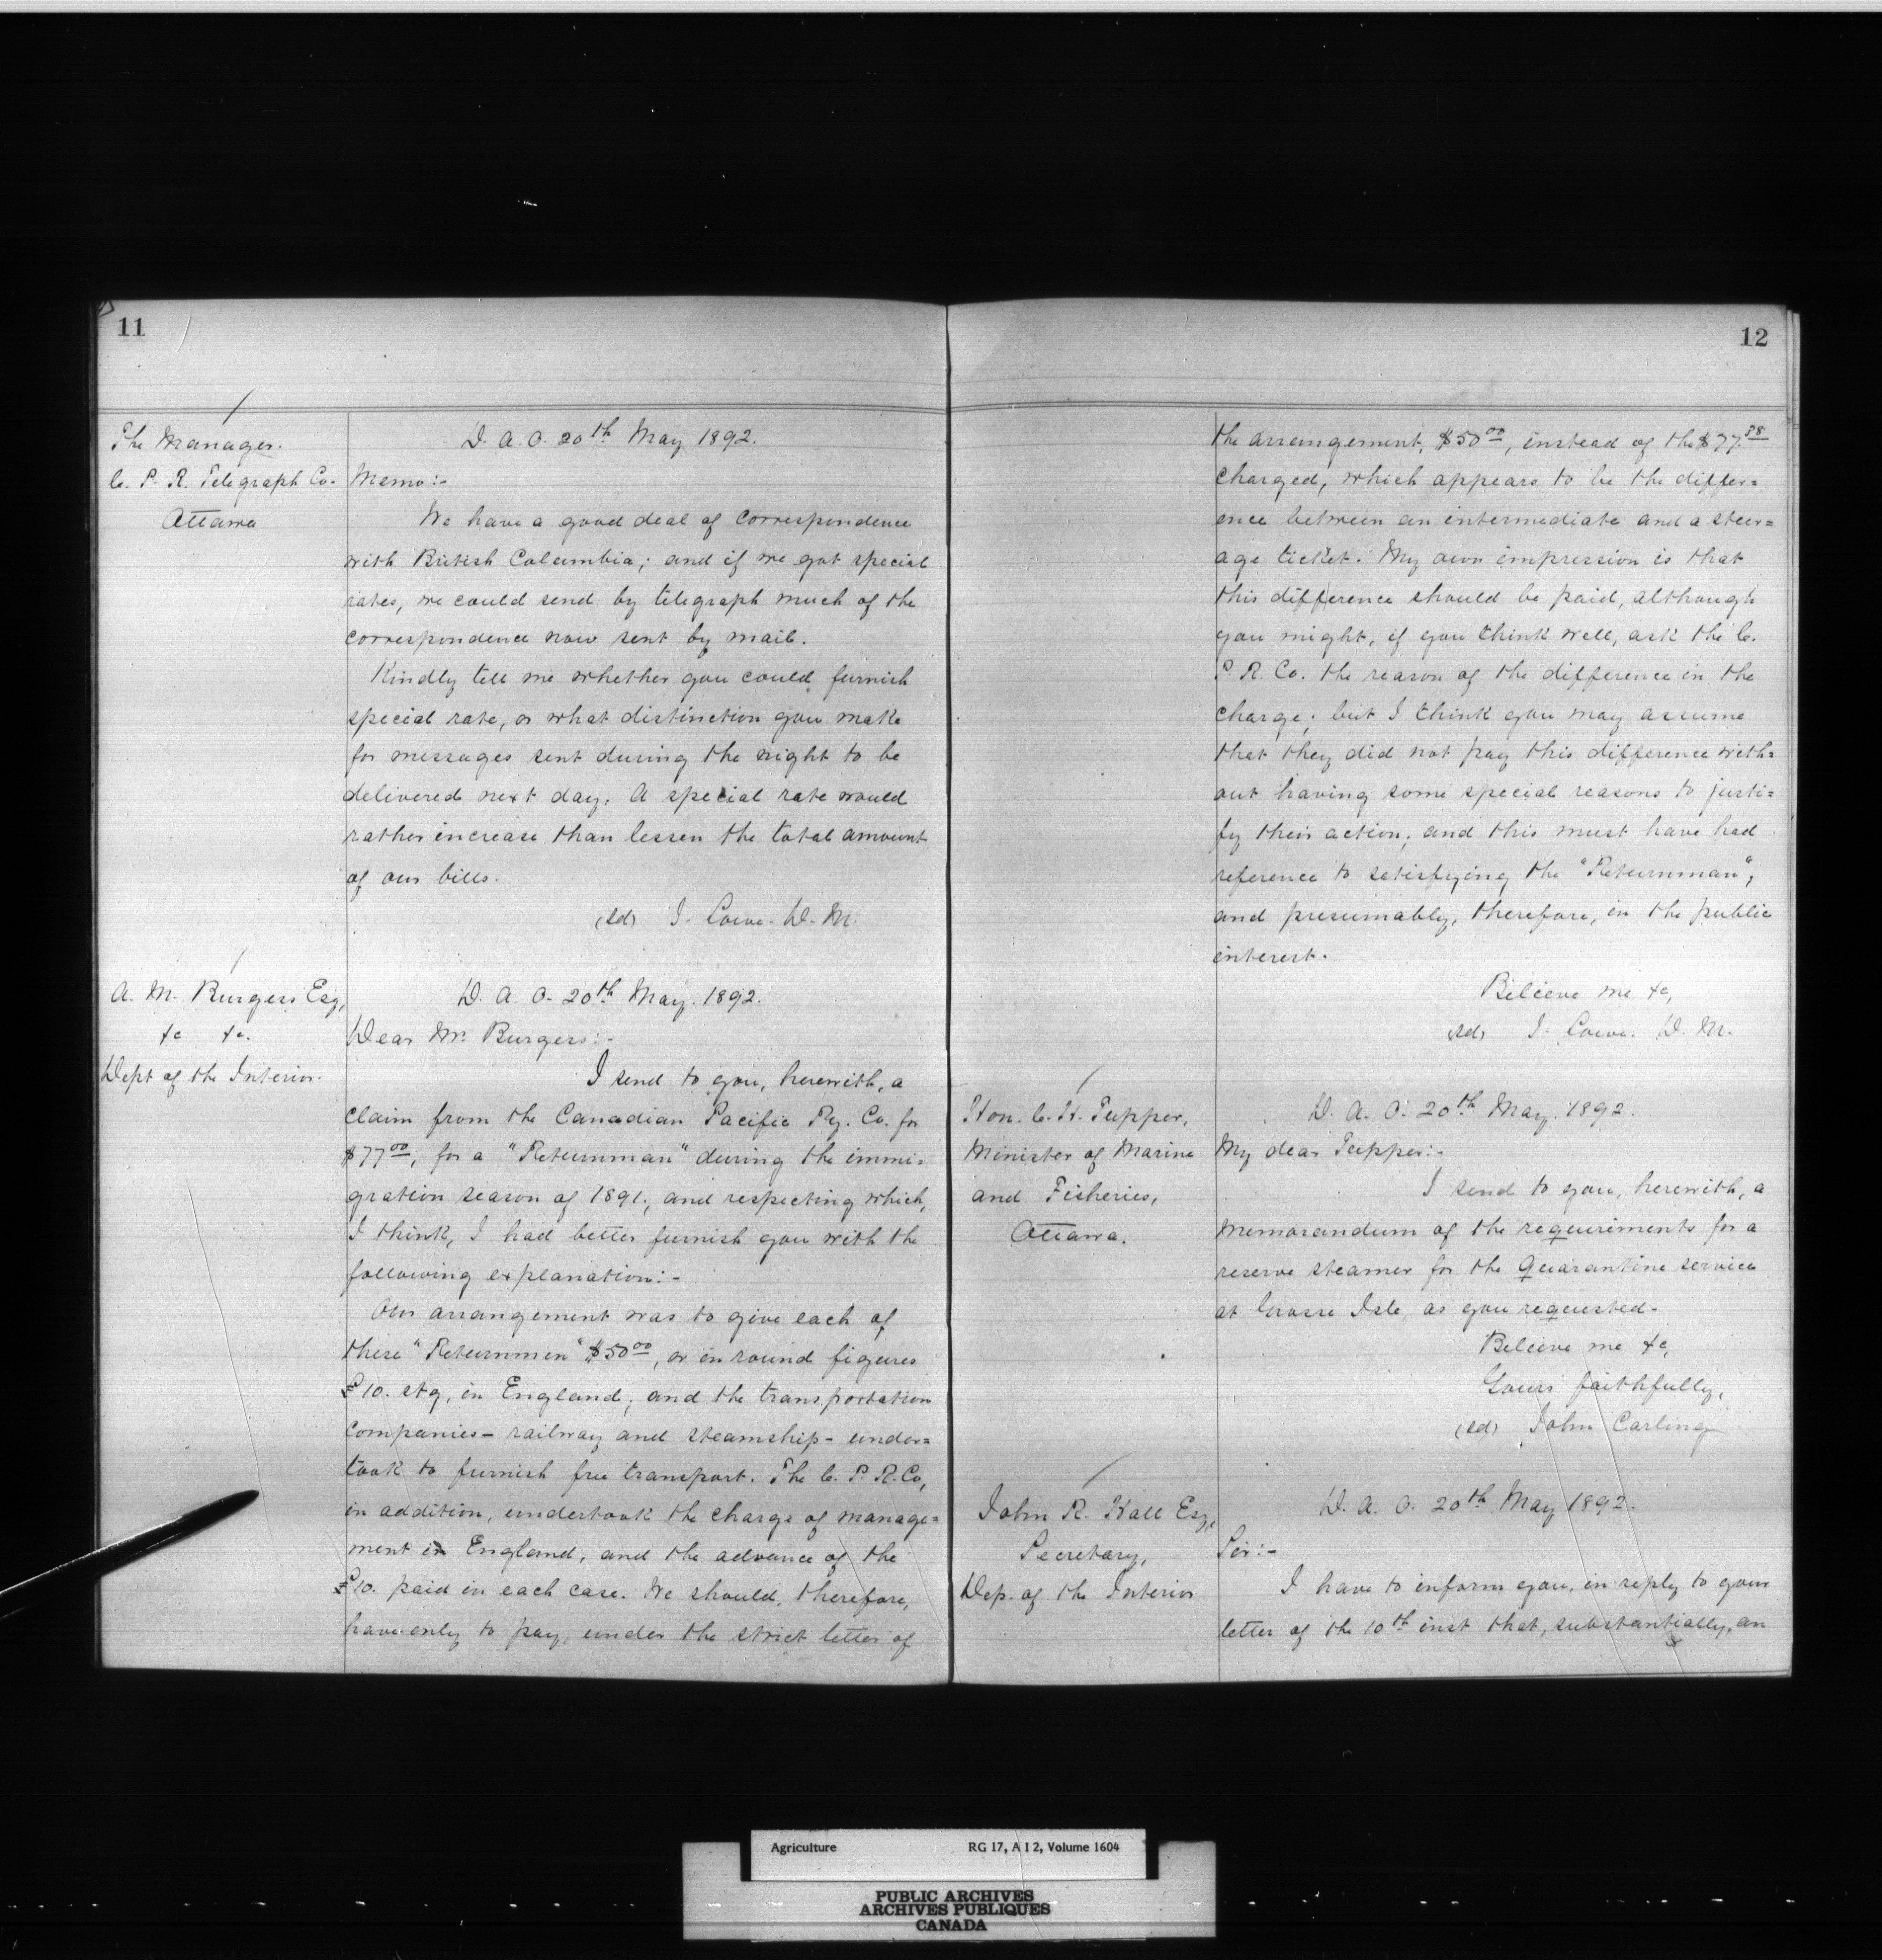 11
The Manager.
C. P. R. Telegraph Co.
Ottawa
D. A. O. 20th May 1892.
Memo:-
We have a good deal of correspondence
with British Columbia; and if we got special
rates, we could send by telegraph much of the
correspondence now sent by mail.
Kindly tell me whether you could furnish
special rate, or what distinction you make
for messages sent during the night to be
delivered next day. A special rate would
rather increase than lessen the total amount
of our bills.
(sd) J. Lowe. D. M.
A. M. Burgess Esq,
&c &c.
Dept of the Interior.
D. A. O. 20th May. 1892.
Dear Mr. Burgess:-
I send to you, herewith, a
claim from the Canadian Pacific Ry. Co. for
$77.00, for a "Returnman" during the immi=
gration season of 1891, and respecting which,
I think, I had better furnish you with the
following explanation:-
Our arrangement was to give each of
these "Returnmen" $50.00, or in round figures
£10. stg, in England; and the transportation
companies - railway and steamship - under=
took to furnish free transport. The C. P. R. Co,
in addition, undertook the charge of manage=
ment in England, and the advance of the
£10. paid in each case. We should, therefore,
have only to pay, under the strict letter of
12
the arrangement, $50.00, instead of the $77.
charged, which appears to be the differ=
ence between an intermediate and a steer=
age ticket. My own impression is that
this difference should be paid, although
you might, if you think well, ask the C.
P. R. Co. the reason of the difference in the
charge; but I think you may assume
that they did not pay this difference with=
out having some special reasons to justi=
fy their action; and this must have had
reference to satisfying the "Returnman",
and presumably, therefore, in the public
interest.
Believe me &c,
(sd) J. Lowe. D. M.
Hon. C. H. Tupper,
Minister of Marine
and Fisheries,
Ottawa.
D. A. O. 20th May. 1892.
My dear Tupper:-
I send to you, herewith, a
memorandum of the requirements for a
reserve steamer for the Quarantine service
at Grosse Isle, as you requested.
Believe me &c,
Yours faithfully,
(sd) John Carling
John R. Hall Esq,
Secretary,
Dep. of the Interior
D. A. O. 20th May 1892.
Sir:-
I have to inform you, in reply to your
letter of the 10th inst that, substantially, an
Agriculture
RG 17, A I 2, Volume 1604
PUBLIC ARCHIVES
ARCHIVES PUBLIQUES
CANADA